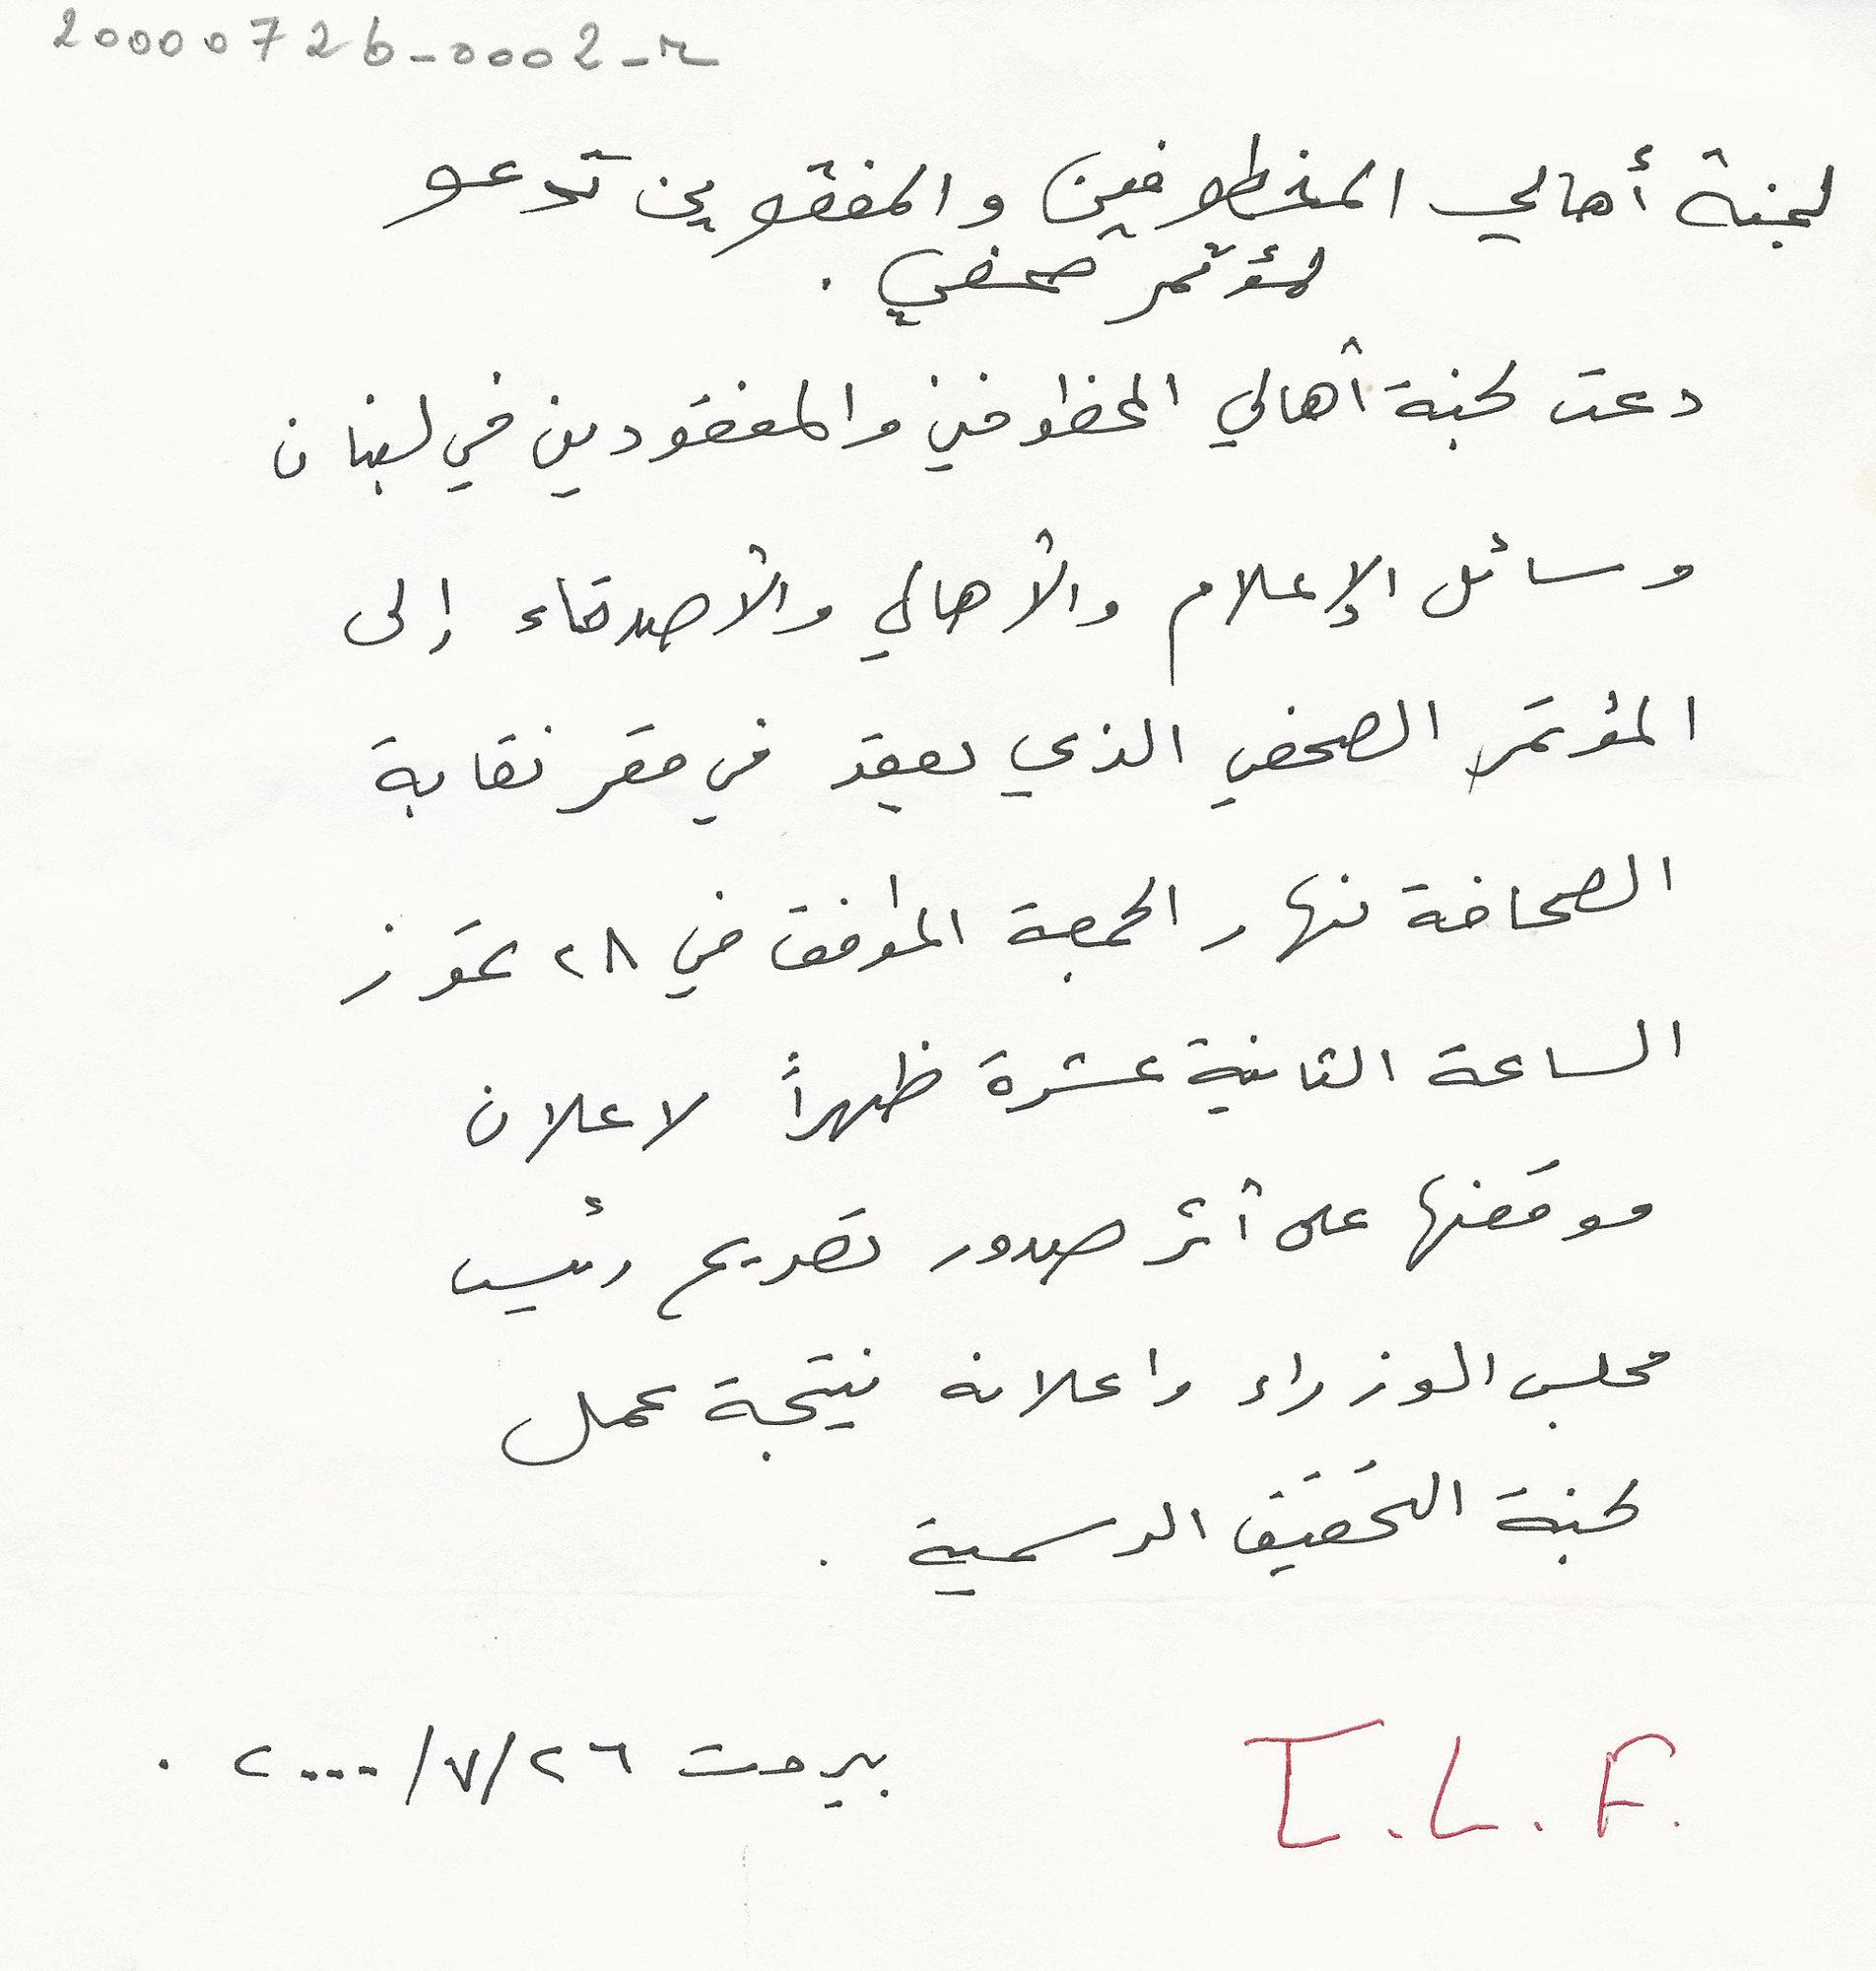 20000726-0002-r
لجنة أهالي المخطوفين والمفقودين تدعو
لمؤتمر صحفي .
دعت لجنة أهالي المخطوفين والمفقودين في لبنان
وسائل الإعلام والأهالي والأصدقاء إلى
المؤتمر الصحفي الذي يعقد في مقر نقابة
الصحافة نهار الجمعة الموافق في ٢٨ تموز
الساعة الثانية عشرة ظهراً لاعلان
موقفها على أثر صدور تصريح رئيس
مجلس الوزراء واعلانه نتيجة عمل
لجنة التحقيق الرسمية .
بيروت ٢٦/٧/٢٠٠٠ .
I.L.F.